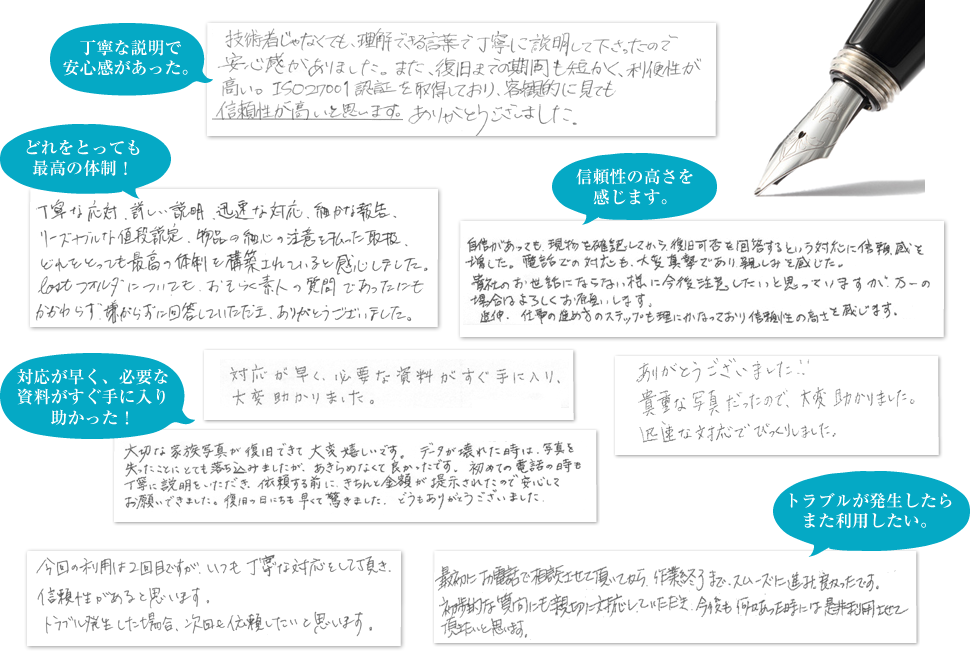 丁寧な説明で
安心感があった。
技術者じゃなくても、理解できる言葉で丁寧に説明して下さったので
安心感がありました。また、復旧までの期間も短かく、利便性が
高い。ISO27001認証を取得しており、客観的に見ても
信頼性が高いと思います。ありがとうございました。
どれをとっても
最高の体制！
丁寧な応対、詳しい説明、迅速な対応、細かな報告、
リーズナブルな値段設定、物品の細心の注意を払った取扱、
どれをとっても最高の体制を構築されていると感じました。
lostフォルダについても、おそらく素人の質問であったにも
かかわらず、嫌がらずに回答していただき、ありがとうございました。
信頼性の高さを
感じます。
自信があっても、現物を確認してから、復旧可否を回答するという対応に信頼感を
増した。電話での対応も、大変真摯であり、親しみを感じた。
貴社のお世話にならない様に今後注意したいと思っていますが、万一の
場合はよろしくお願いします。
追伸、仕事の進め方のステップも理にかなっており信頼性の高さを感じます。
対応が早く、必要な
資料がすぐ手に入り
助かった！
対応が早く、必要な資料がすぐ手に入り、
大変助かりました。
ありがとうございました!!
貴重な写真だったので、大変助かりました。
迅速な対応でびっくりしました。
大切な家族写真が復旧できて大変嬉しいです。データが壊れた時は、写真を
失ったことにとても落ち込みましたが、あきらめなくて良かったです。初めての電話の時も
丁寧に説明をいただき、依頼する前に、きちんと金額が提示されたので安心して
お願いできました。復旧の日にちも早くて驚きました。どうもありがとうございました。
トラブルが発生したら
また利用したい。
今回の利用は2回目ですが、いつも丁寧な対応をして頂き、
信頼性があると思います。
トラブル発生した場合、次回も依頼したいと思います。
最初にお電話で相談させて頂いてから、作業終了まで、スムーズに進み良かったです。
初歩的な質問にも親切に対応していただき、今後も何かあった時には是非利用させて
頂きたいと思います。